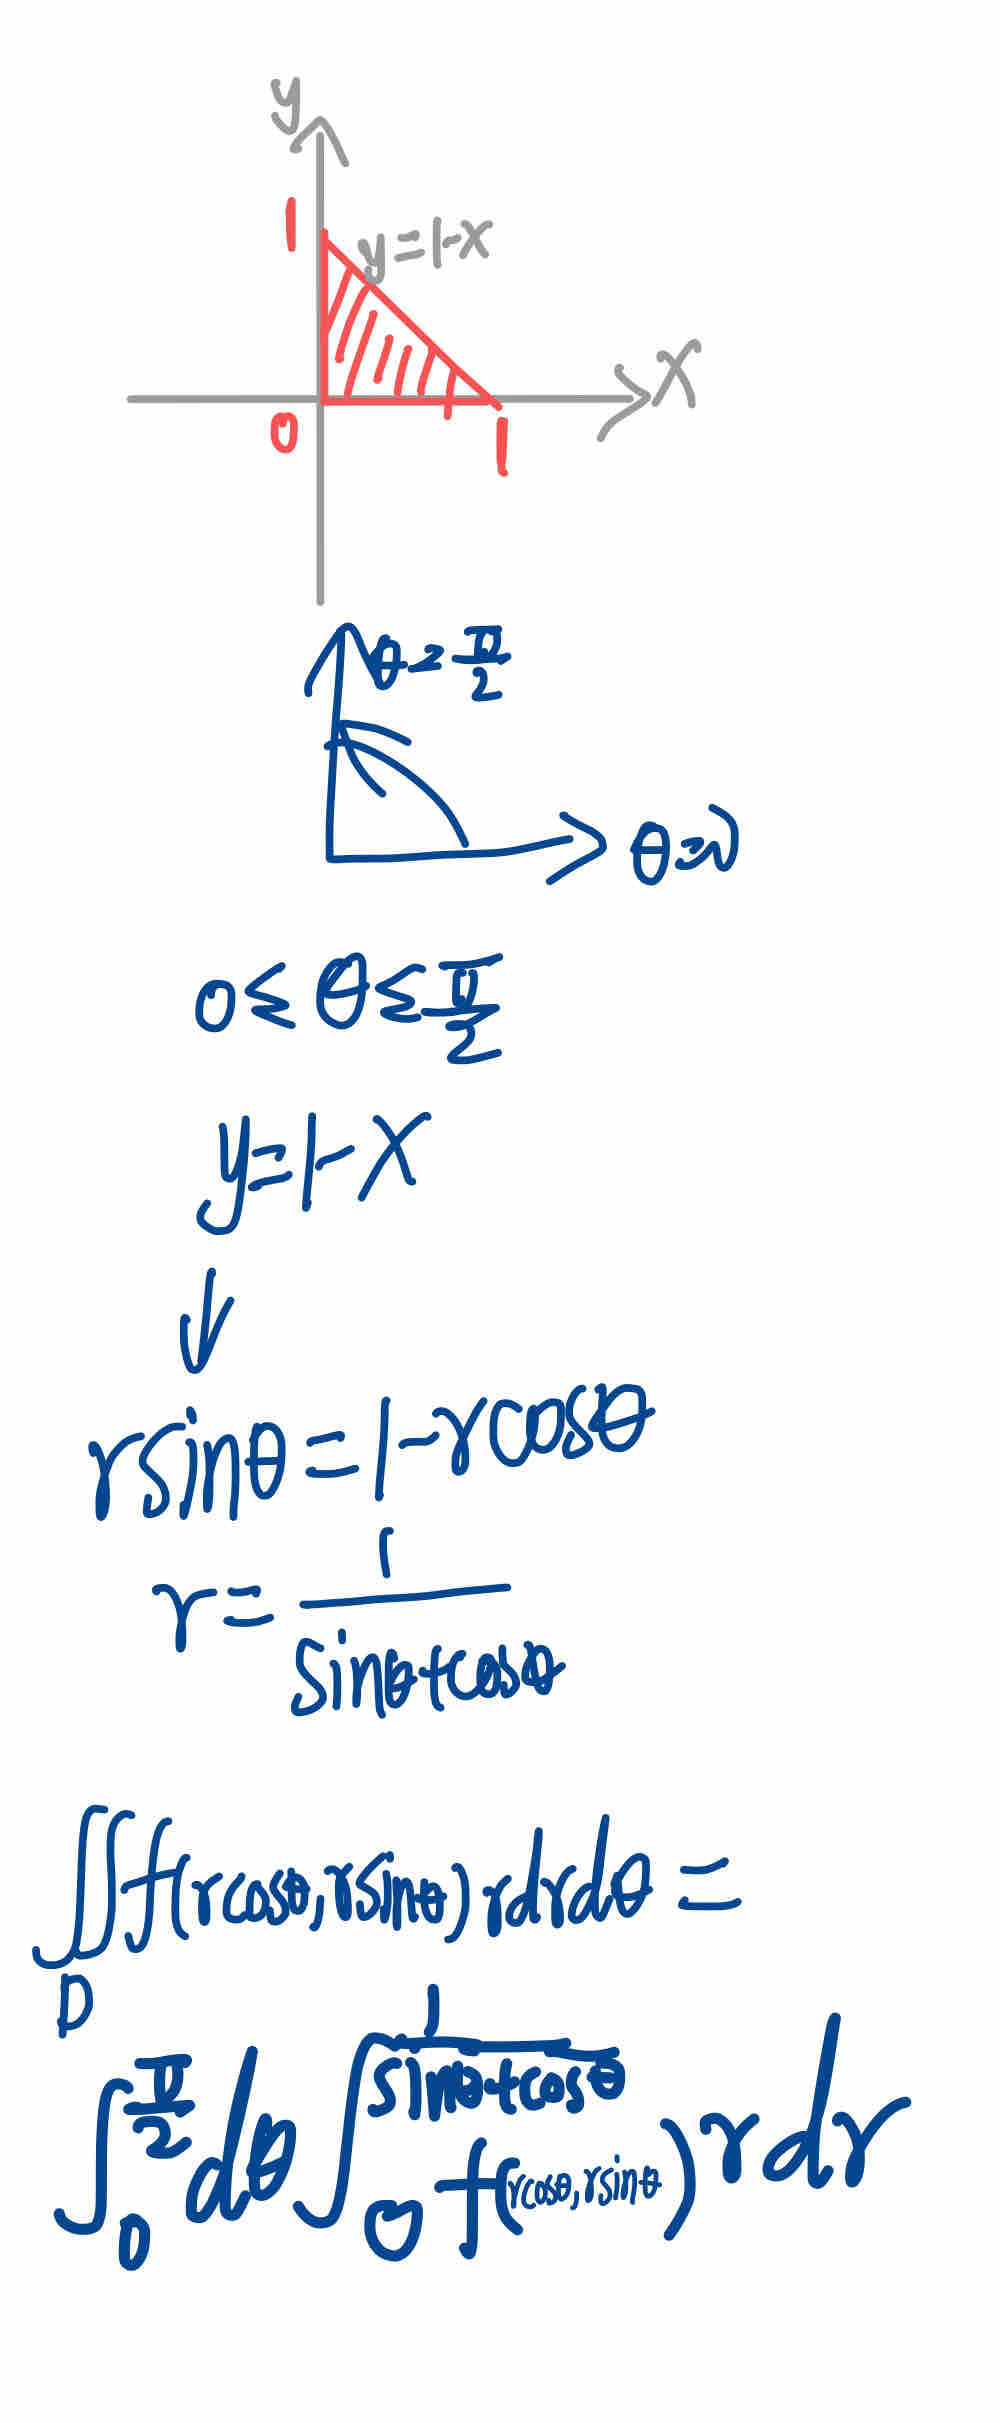 y
1
y=1-x
x
0
1
θ=π/2
θ=0
0≤θ≤π/2
y=1-x
↓
rsinθ=1-rcosθ
r=1/(sinθ+cosθ)
∬_D f(rcosθ,rsinθ)rdrdθ=
∫_0^{π/2} dθ ∫_0^{1/(sinθ+cosθ)} f(rcosθ,rsinθ)rdr